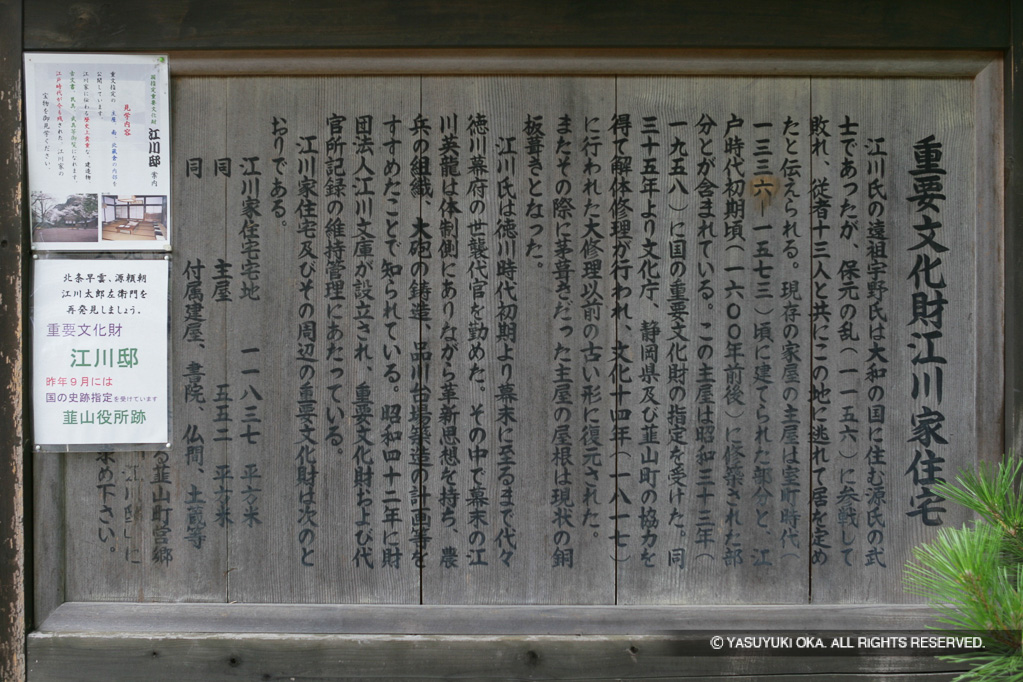 重要文化財江川家住宅
江川氏の遠祖宇野氏は大和の国に住む源氏の武
士であったが、保元の乱（一一五六）に参戦して
敗れ、従者十三人と共にこの地に逃れて居を定め
たと伝えられる。現存の家屋の主屋は室町時代（
一三三六－一五七三）頃に建てられた部分と、江
戸時代初期頃（一六〇〇年前後）に修築された部
分とが含まれている。この主屋は昭和三十三年（
一九五八）に国の重要文化財の指定を受けた。同
三十五年より文化庁、静岡県及び韮山町の協力を
得て解体修理が行われ、文化十四年（一八一七）
に行われた大修理以前の古い形に復元された。
またその際に茅葺きだった主屋の屋根は現状の銅
板葺きとなった。
江川氏は徳川時代初期より幕末に至るまで代々
徳川幕府の世襲代官を勤めた。その中で幕末の江
川英龍は体制側にありながら革新思想を持ち、農
兵の組織、大砲の鋳造、品川台場築造の計画等を
すすめたことで知られている。昭和四十二年に財
団法人江川文庫が設立され、重要文化財および代
官所記録の維持管理にあたっている。
江川家住宅及びその周辺の重要文化財は次のと
おりである。
江川家住宅宅地　一一八三七　平方米
同　主屋　五五二　平方米
同　付属建屋、書院、仏間、土蔵等
る韮山町宮郷
求め下さい。
国指定重要文化財　江川邸案内
見学内容
重文指定の　主屋、南、北蔵舎の内部を
公開しています。
江川家に伝わる歴史上貴重な、建造物
古文書、民具、武具等御覧になれます
江戸時代が今も残された、江川家の
宝物を御見学ください。
北条早雲、源頼朝
江川太郎左衛門を
再発見しましょう。
重要文化財
江川邸
昨年9月には
国の史跡指定を受けています
韮山役所跡
© YASUYUKI OKA. ALL RIGHTS RESERVED.